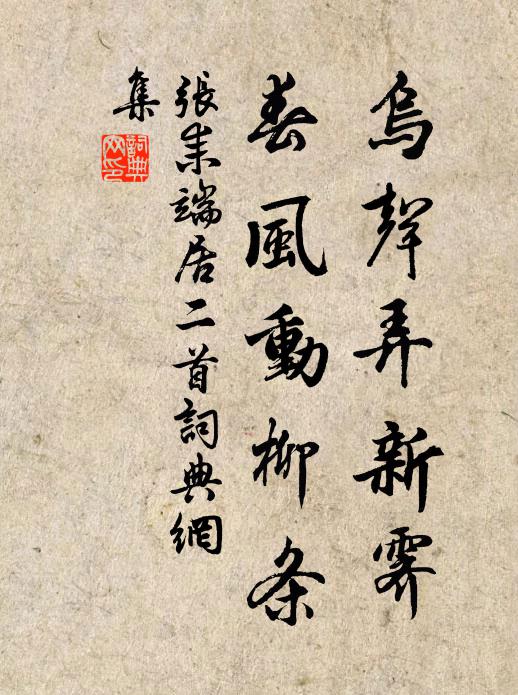 烏聲弄新霽
春風動柳条
張耒端居二首詞典網
集
詞典
网印